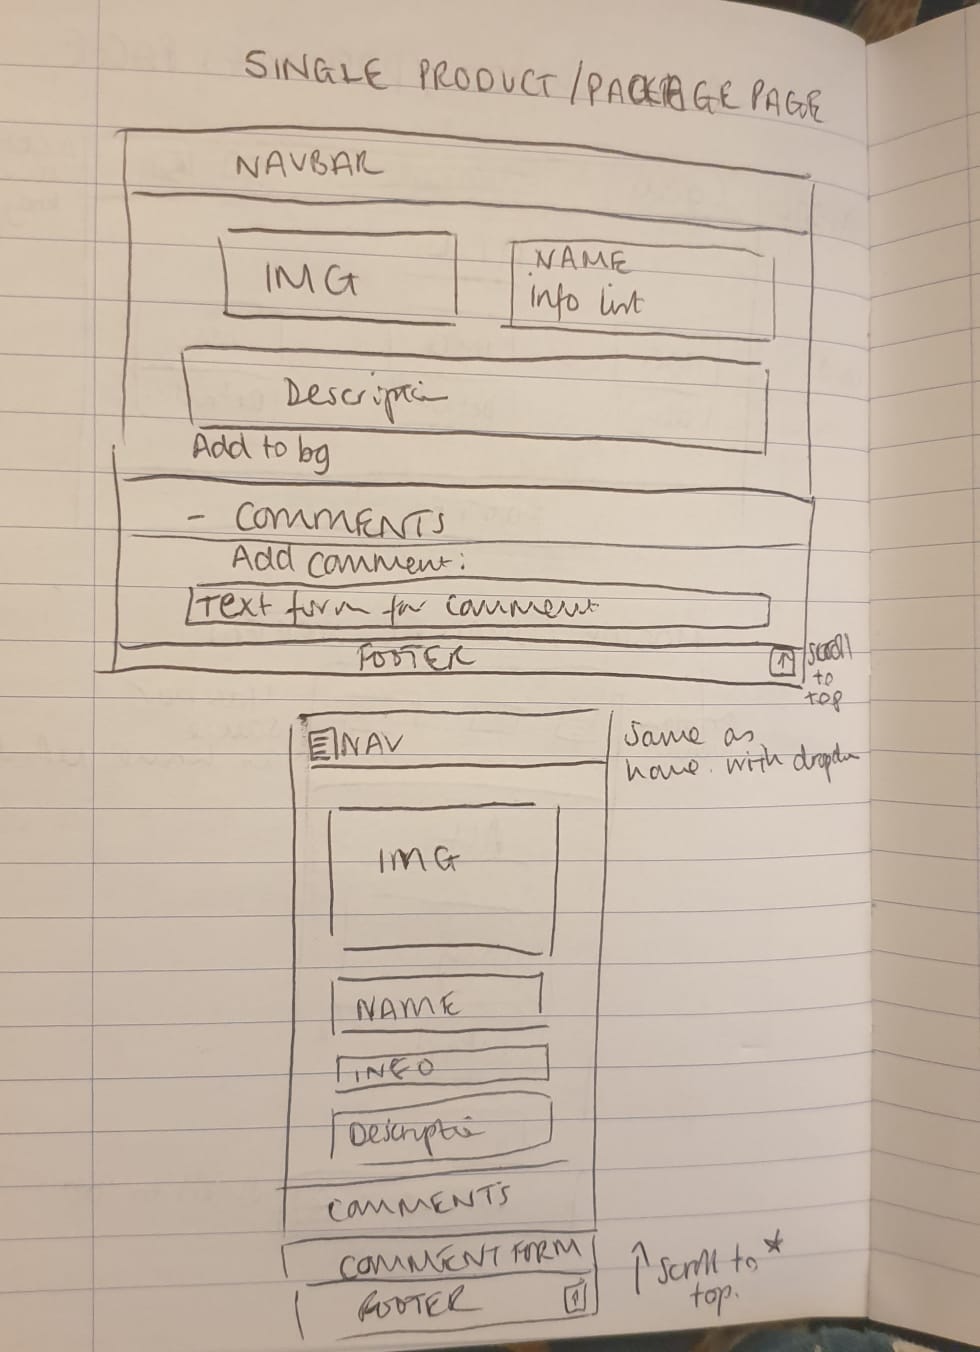 SINGLE PRODUCT/PACKAGE PAGE
NAVBAR
IMG
NAME
info list
Description
Add to bg
- COMMENTS
Add comment:
Text form for comment
FOOTER
↑
scroll
to
top
NAV
same as
home. with dropdn
IMG
NAME
INFO
Description
COMMENTS
COMMENT FORM
FOOTER
↑
↑ scroll to *
top.